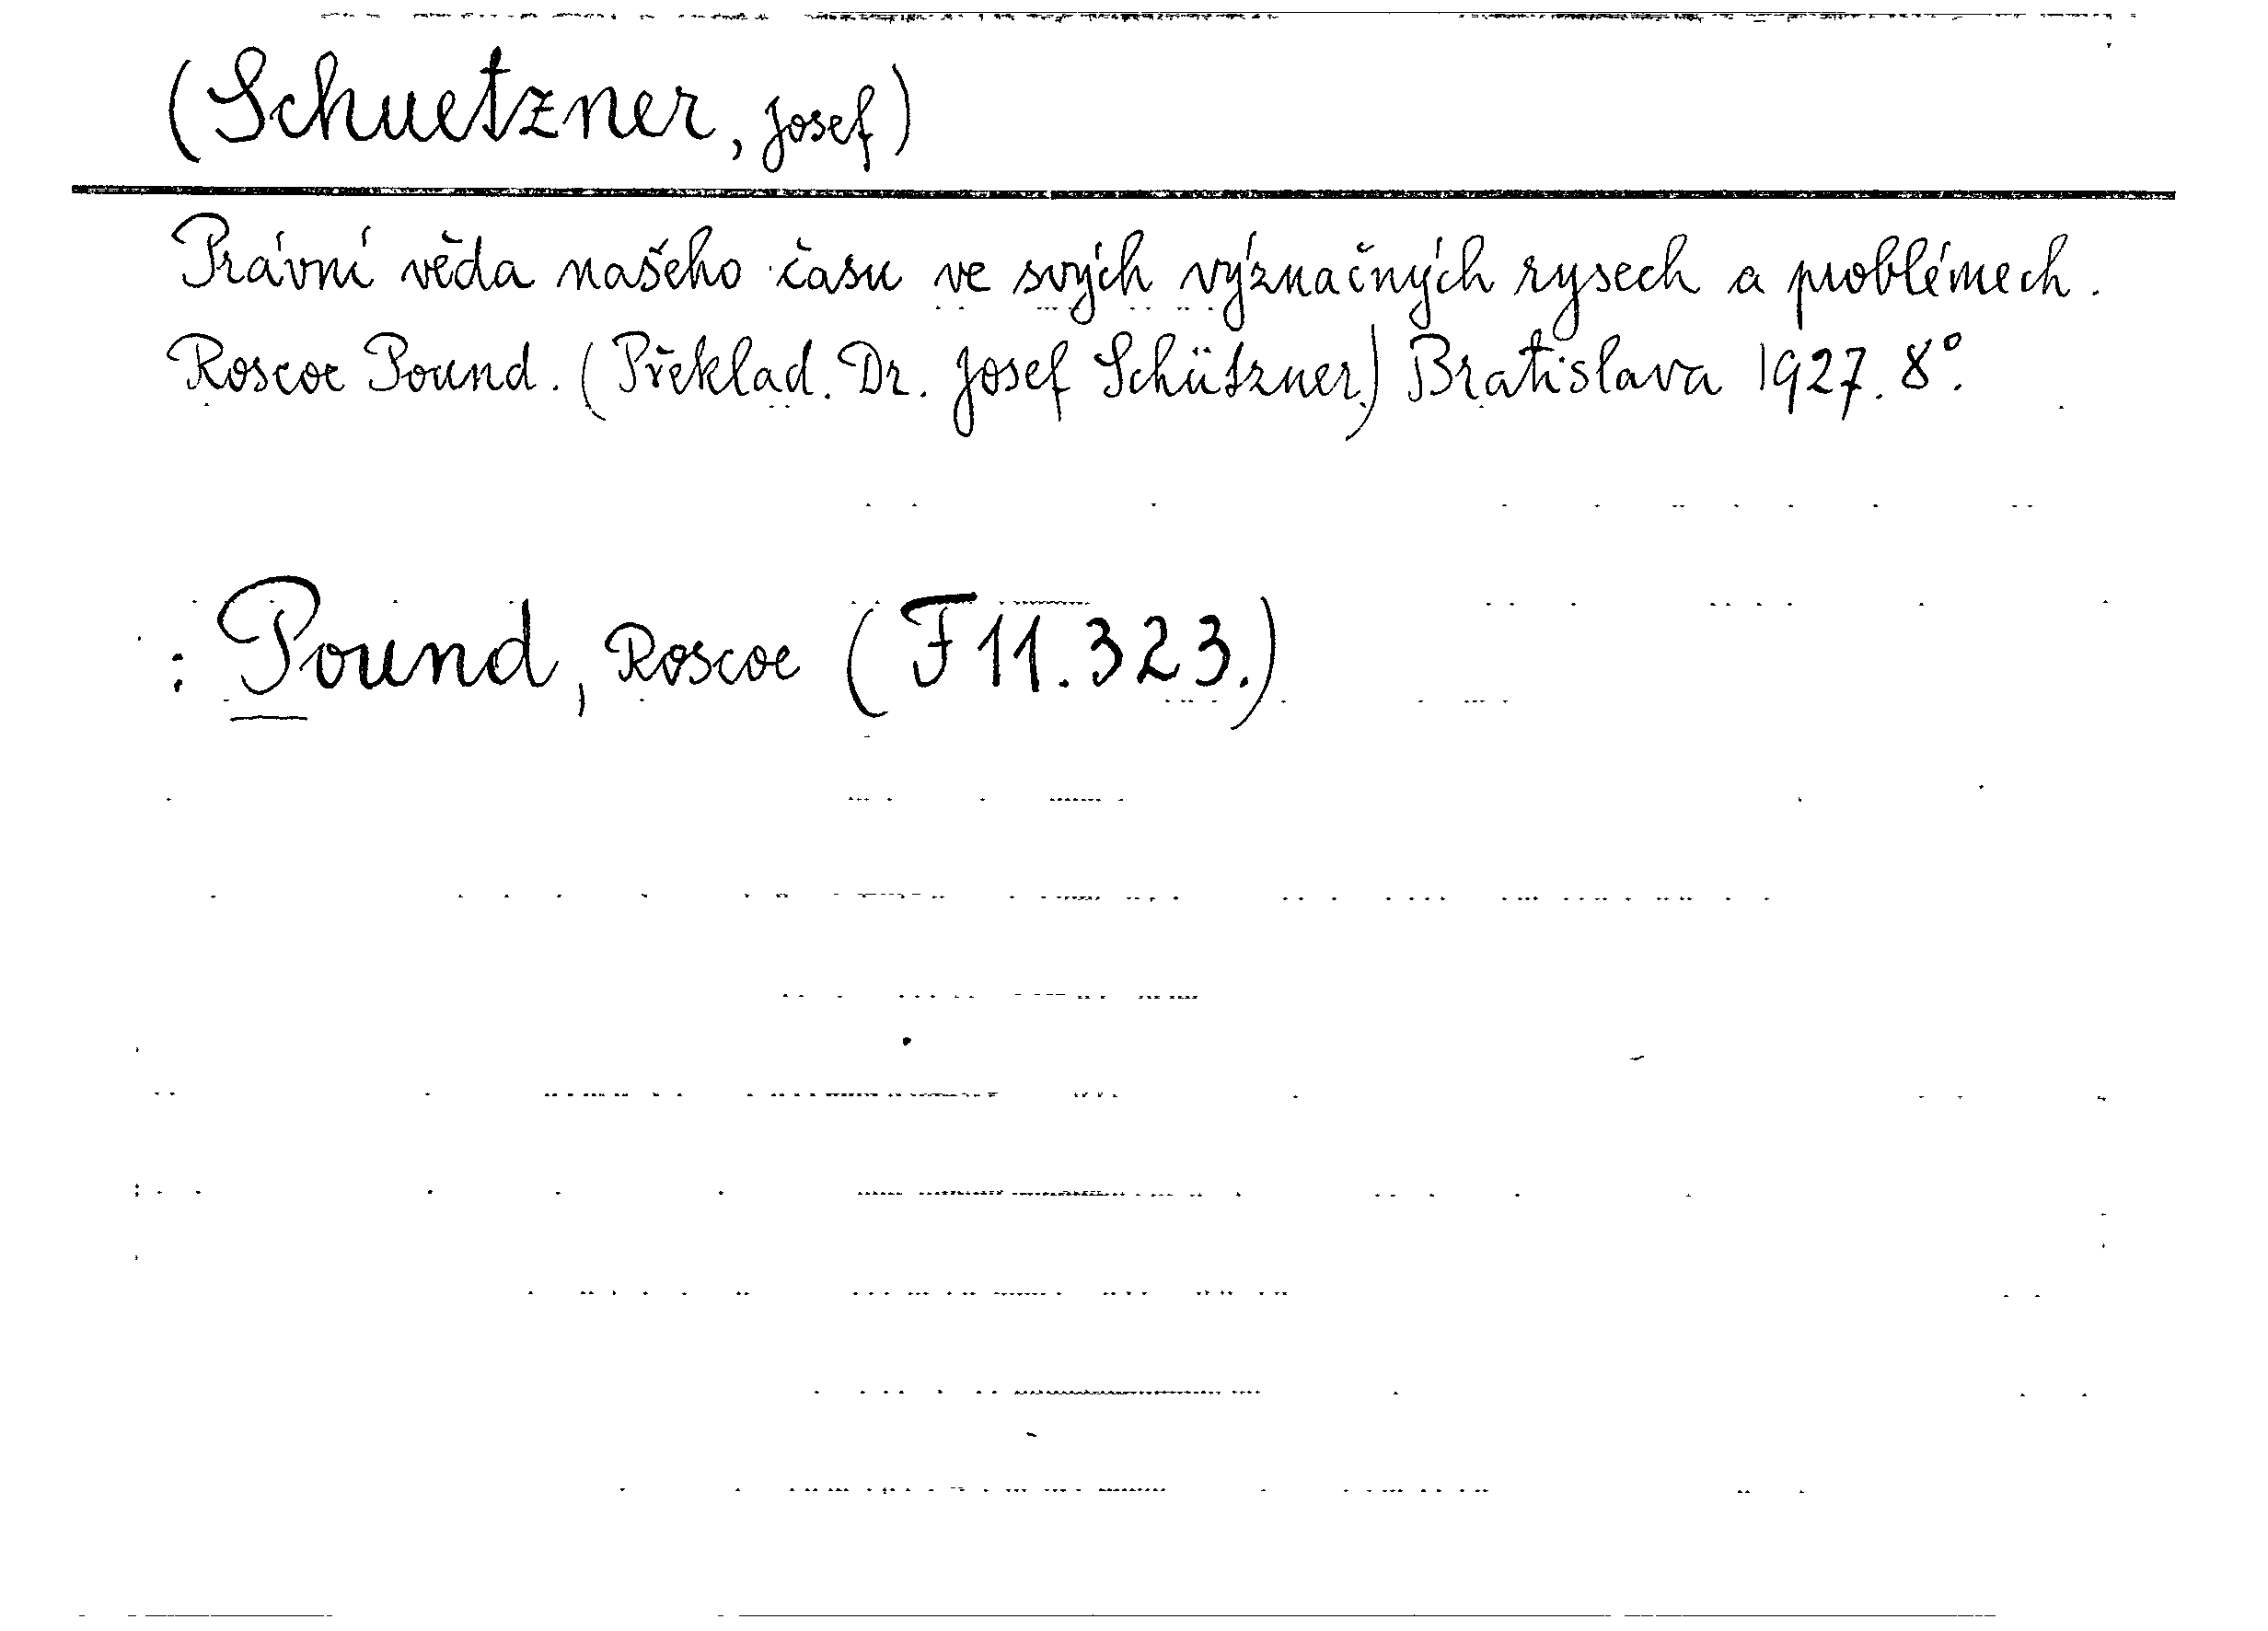 (Schuetzner, Josef)
Právní věda našeho času ve svých význačných rysech a problémech.
Roscoe Pound. (Překlad. Dr. Josef Schützner.) Bratislava 1927. 8°.
: Pound, Roscoe (F 11.323.)